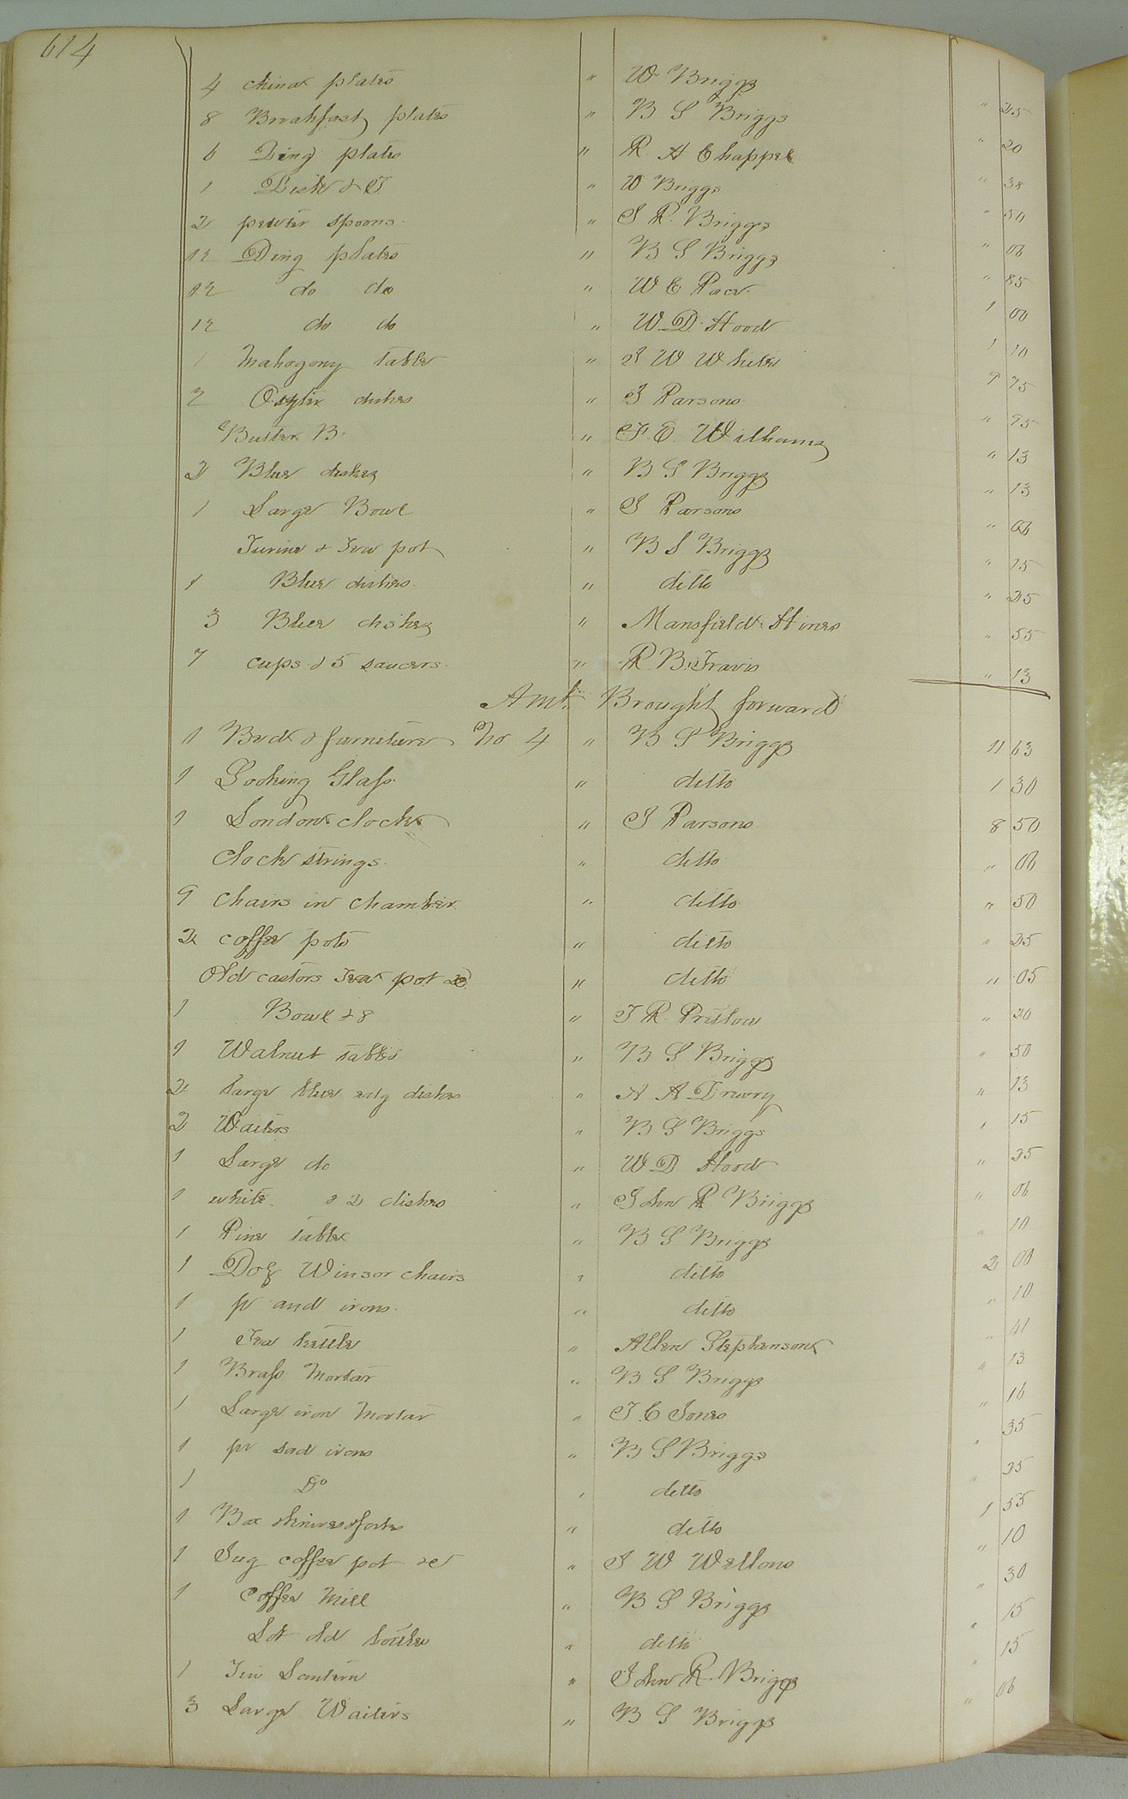 614
4 china plates " W Briggs " 25
8 Breakfast plates " B S Briggs " 20
6 Ding plates " R A Chappel " 38
1 Dish & T " W Briggs " 50
2 pewter spoons " J R Briggs " 06
12 Ding plates " B S Briggs " 85
12 do do " W E Pace 1 00
12 do do " W D Hood 1 10
1 Mahogony table " J W White 9 75
2 Oyster dishes " J Parsons " 95
Butter B. " F. E. Williams " 13
2 Blue dishes " B S Briggs " 13
1 Large Bowl " J Parsons " 06
Turine & Tea pot " B S Briggs " 75
1 Blue dishes " ditto " 25
3 Blue dishes " Mansfield Hines " 55
7 cups & 5 saucers " R B Travis " 13
Amt. Brought forward
1 Bed & furniture No 4 " B S Briggs 11 63
1 Looking Glass " ditto 1 30
1 London clock " J Parsons 8 50
clock strings " ditto " 06
9 chairs in chamber " ditto " 50
2 coffee pots " ditto " 25
Old castors Tea pot &c " ditto " 05
1 Bowl & 8 " J R Pretlow " 20
1 Walnut table " B S Briggs " 50
2 large blue edg dishes " A A Drewry " 13
2 Waiters " B S Briggs " 15
1 Large do " W D Hood " 25
1 white & 2 dishes " John R Briggs " 06
1 Pine table " B S Briggs " 10
1 Doz Winsor chairs " ditto 2 00
1 pr and irons " ditto " 10
1 Tea kettle " Allen Stephenson " 41
1 Brass Mortar " B S Briggs " 13
1 Large iron Mortar " J. C Jones " 16
1 pr sad irons " B S Briggs " 35
1 Do " ditto " 25
1 Box knives & forks " ditto 1 55
1 Jug coffee pot &c " J W Wellons " 10
1 coffee Mill " B S Briggs " 30
Lot old bottles " ditto " 15
1 Tin Lantern " John R Briggs " 15
3 Large Waiters " B S Briggs " 06